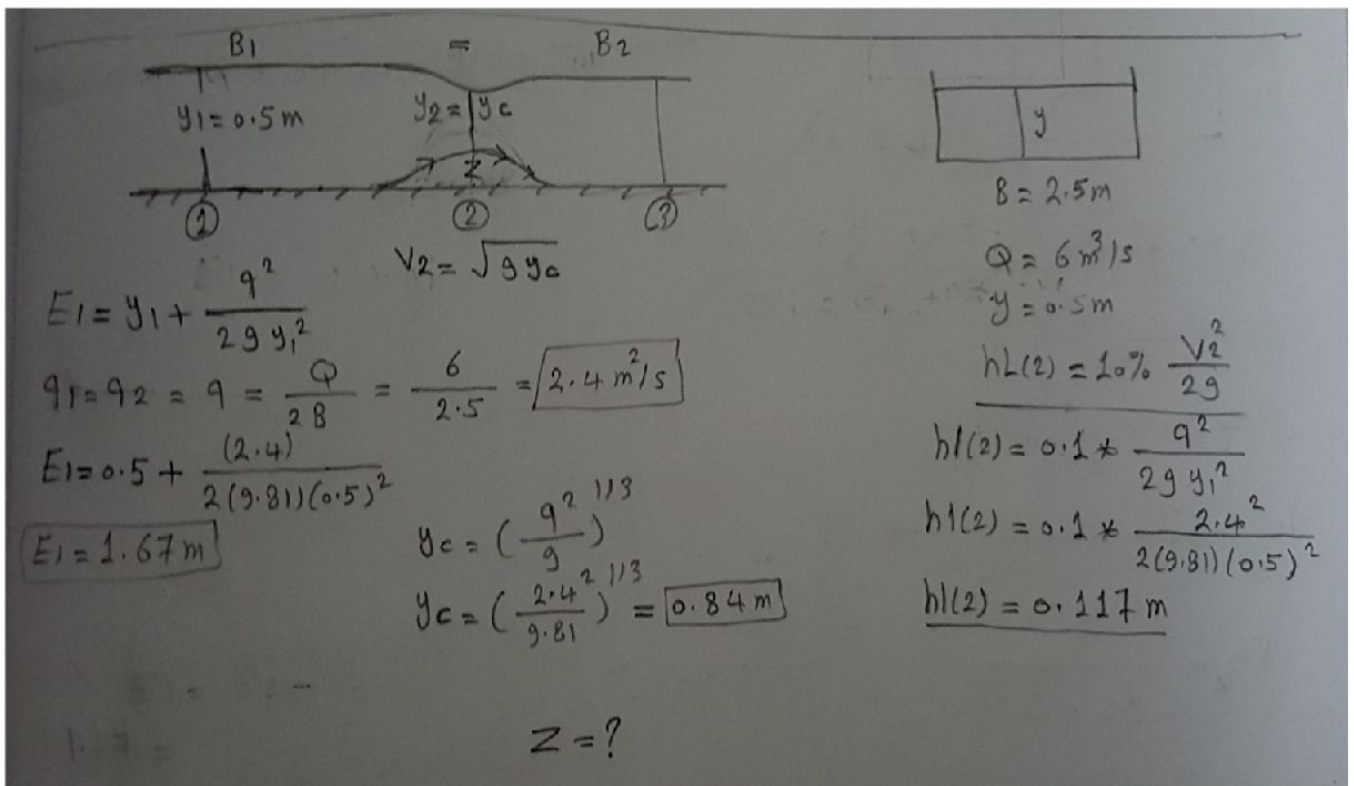 B1 = B2
y1 = 0.5 m
y2 = yc
z
① ② ③
V2 = √g yc
E1 = y1 + q² / 2 g y1²
q1 = q2 = q = Q / 2B = 6 / 2.5 = 2.4 m²/s
E1 = 0.5 + (2.4) / 2(9.81)(0.5)²
E1 = 1.67 m
yc = (q² / g)^1/3
yc = (2.4² / 9.81)^1/3 = 0.84 m
y
B = 2.5 m
Q = 6 m³/s
y = 0.5 m
hL(2) = 10% V2² / 2g
hl(2) = 0.1 * q² / 2g y1²
hl(2) = 0.1 * 2.4² / 2(9.81)(0.5)²
hl(2) = 0.117 m
Z = ?